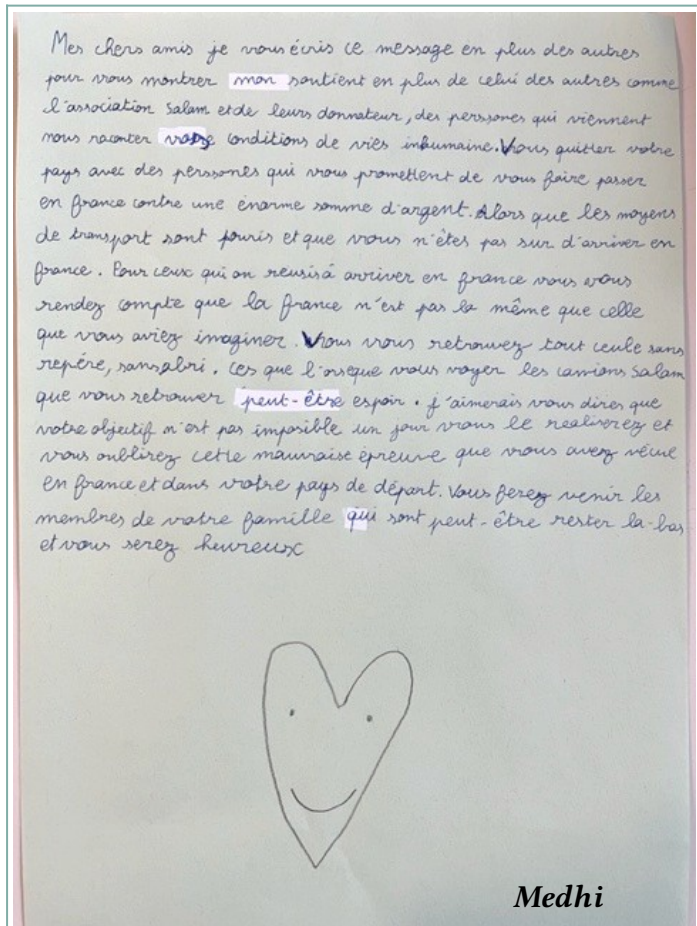 Mes chers amis je vous écris ce message en plus des autres
pour vous montrer mon soutient en plus de celui des autres comme
l'association Salam et de leurs donnateur, des perssones qui viennent
nous raconter votre conditions de vies inhumaine. Vous quitter votre
pays avec des perssones qui vous promettent de vous faire passer
en france contre une énorme somme d'argent. Alors que les moyens
de transport sont pouris et que vous n'êtes pas sur d'arriver en
france. Pour ceux qui on reusis à arriver en france vous vous
rendez compte que la france n'est pas la même que celle
que vous aviez imaginer. Vous vous retrouvez tout ceule sans
repére, sans abri. Ces que l'orseque vous voyer les camions Salam
que vous retrouver peut-être espoir. j'aimerais vous dires que
votre objectif n'est pas imposible un jour vous le realiserez et
vous oublirez cette mauvaise épreuve que vous avez vécue
en france et dans votre pays de départ. Vous ferez venir les
membres de votre famille qui sont peut-être rester la-bas
et vous serez heureux
Medhi